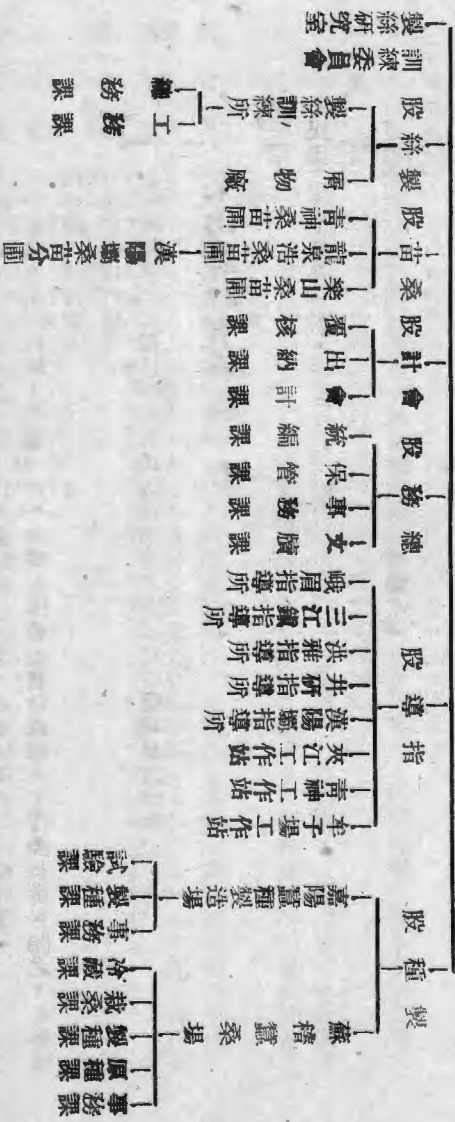 製種股
蘇稽蠶桑場
事務課
原種課
製種課
栽桑課
冷藏課
嘉陽蠶種製造場
事務課
製種課
試驗課
指導股
牟子場工作站
青神工作站
夾江工作站
漢陽壩指導所
井研指導所
洪雅指導所
三江鎮指導所
峨眉指導所
總務股
文牘課
事務課
保管課
統編課
會計股
會計課
出納課
覆核課
桑苗股
樂山桑苗圃
龍泉浩桑苗圃
漢陽壩桑苗分圃
青神桑苗圃
製絲股
屑物廠
製絲訓練所
工務課
總務課
訓練委員會
製絲研究室